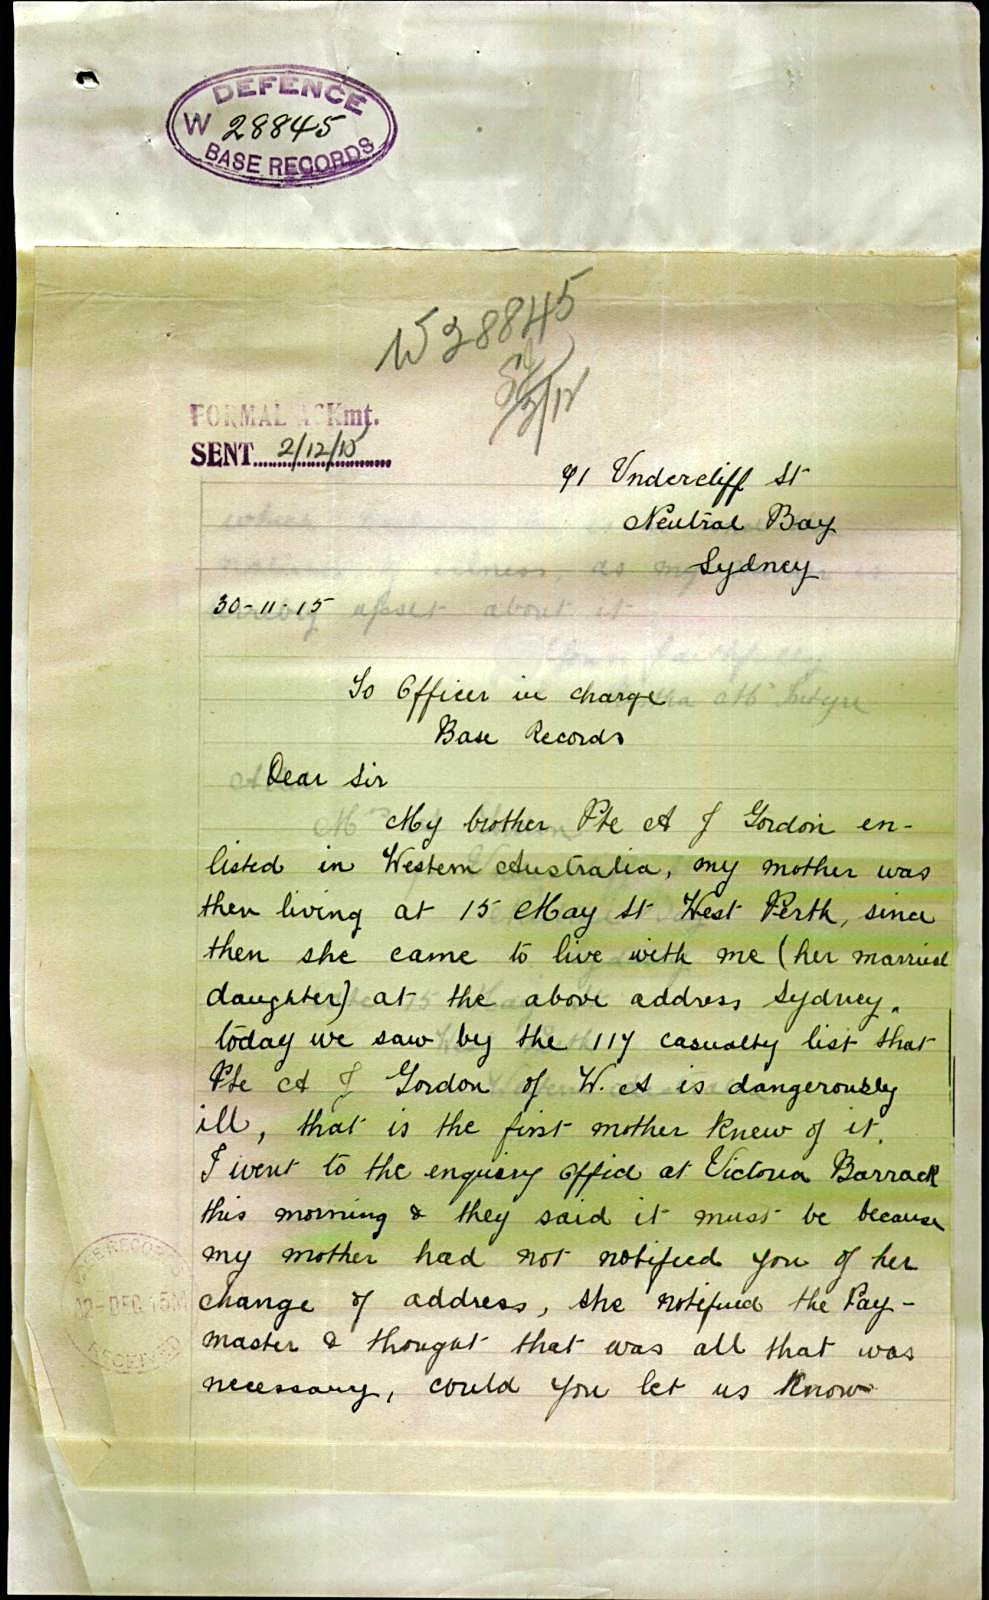 DEFENCE
W 28845
BASE RECORDS
W 28845
2/12
FORMAL ACKmt.
SENT 2/12/15
91 Undercliff St
Neutral Bay
Sydney
30-11-15
To Officer in charge
Base Records
Dear Sir
My brother Pte A J Gordon en-
listed in Western Australia, my mother was
then living at 15 May St West Perth, since
then she came to live with me (her married
daughter) at the above address Sydney.
today we saw by the 117 casualty list that
Pte A J Gordon of W. A is dangerously
ill, that is the first mother knew of it.
I went to the enquiry office at Victoria Barrack
this morning & they said it must be because
my mother had not notified you of her
change of address, she notified the Pay-
master & thought that was all that was
necessary, could you let us know
BASE RECORDS
2-DEC. 15
RECEIVED